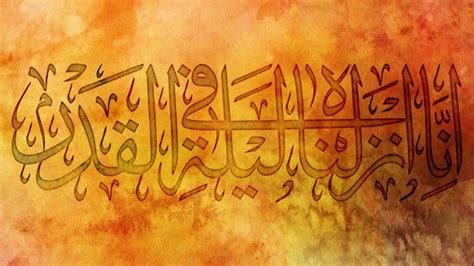 إِنَّا انزلناه في ليلة القدر